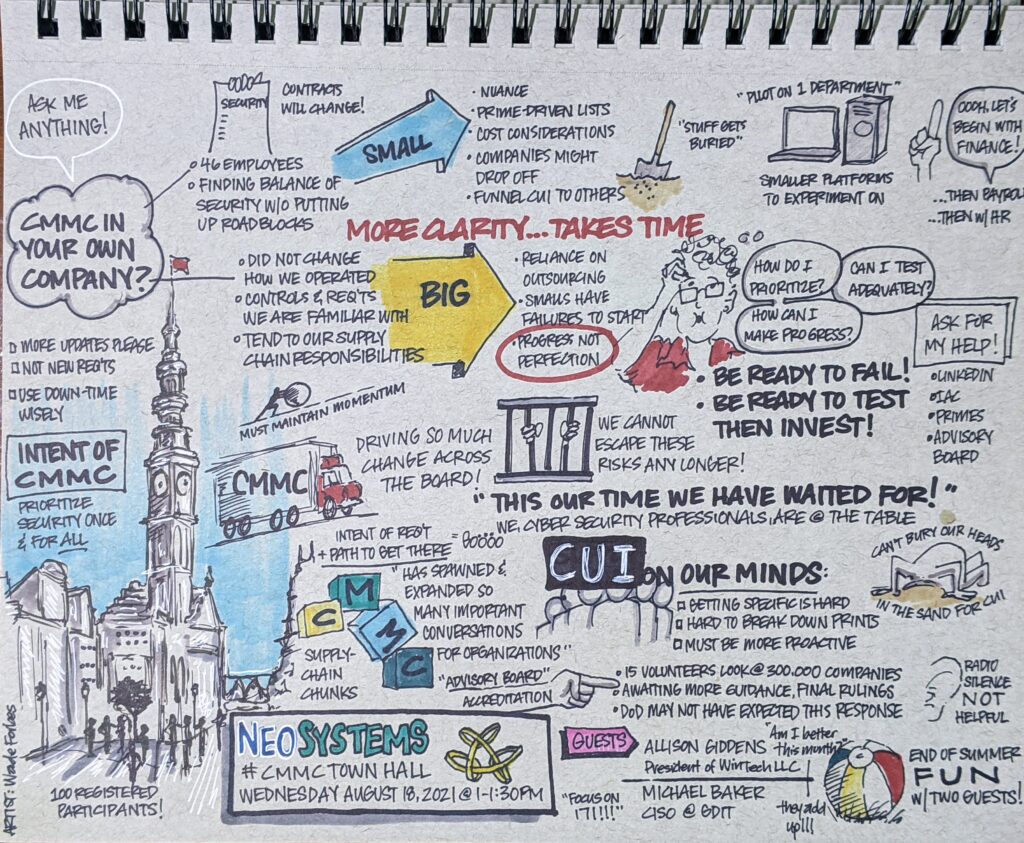 ASK ME
ANYTHING!
SECURITY
CONTRACTS
WILL CHANGE!
SMALL
• NUANCE
• PRIME-DRIVEN LISTS
• COST CONSIDERATIONS
• COMPANIES MIGHT
DROP OFF
• FUNNEL CUI TO OTHERS
"STUFF GETS
BURIED"
"PILOT ON 1 DEPARTMENT"
SMALLER PLATFORMS
TO EXPERIMENT ON
OOOH, LET'S
BEGIN WITH
FINANCE!
...THEN PAYROLL
...THEN W/ HR
CMMC IN
YOUR OWN
COMPANY?
• 46 EMPLOYEES
• FINDING BALANCE OF
SECURITY W/O PUTTING
UP ROADBLOCKS
MORE CLARITY...TAKES TIME
• DID NOT CHANGE
HOW WE OPERATED
• CONTROLS & REQ'TS
WE ARE FAMILIAR WITH
• TEND TO OUR SUPPLY
CHAIN RESPONSIBILITIES
BIG
• RELIANCE ON
OUTSOURCING
• SMALLS HAVE
FAILURES TO START
• PROGRESS NOT
PERFECTION
HOW DO I
PRIORITIZE?
CAN I TEST
ADEQUATELY?
HOW CAN I
MAKE PROGRESS?
ASK FOR
MY HELP!
• LINKEDIN
• IAC
• PRIMES
• ADVISORY
BOARD
• BE READY TO FAIL!
• BE READY TO TEST
THEN INVEST!
MORE UPDATES PLEASE
NOT NEW REQ'TS
USE DOWN-TIME
WISELY
MUST MAINTAIN MOMENTUM
INTENT OF
CMMC
PRIORITIZE
SECURITY ONCE
& FOR ALL
CMMC
DRIVING SO MUCH
CHANGE ACROSS
THE BOARD!
WE CANNOT
ESCAPE THESE
RISKS ANY LONGER!
"THIS OUR TIME WE HAVE WAITED FOR!"
WE, CYBER SECURITY PROFESSIONALS, ARE @ THE TABLE
INTENT OF REQ'T
+ PATH TO GET THERE =
"HAS SPAWNED &
EXPANDED SO
MANY IMPORTANT
CONVERSATIONS
FOR ORGANIZATIONS"
C
M
M
C
SUPPLY-
CHAIN
CHUNKS
CUI
ON OUR MINDS:
GETTING SPECIFIC IS HARD
HARD TO BREAK DOWN PRINTS
MUST BE MORE PROACTIVE
CAN'T BURY OUR HEADS
IN THE SAND FOR CUI
"ADVISORY BOARD"
ACCREDITATION
• 15 VOLUNTEERS LOOK @ 300.000 COMPANIES
• AWAITING MORE GUIDANCE, FINAL RULINGS
• DoD MAY NOT HAVE EXPECTED THIS RESPONSE
RADIO
SILENCE
NOT
HELPFUL
NEOSYSTEMS
# CMMC TOWN HALL
WEDNESDAY AUGUST 18, 2021 @ 1-1:30PM
GUESTS
ALLISON GIDDENS
President of WinTech LLC
MICHAEL BAKER
CISO @ GDIT
"Am I better
this month?"
"FOCUS ON
171!!!"
they add
up!!!
END OF SUMMER
FUN
W/ TWO GUESTS!
100 REGISTERED
PARTICIPANTS!
ARTIST: Wade Forbes